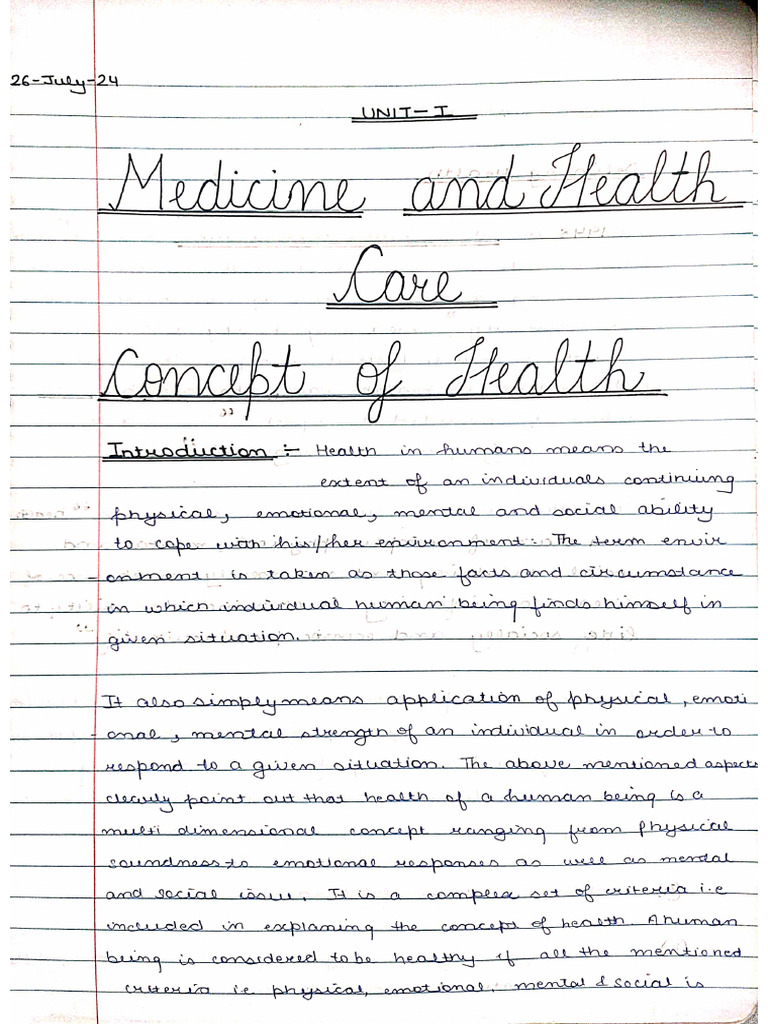 26-July-24
UNIT-I
Medicine and Health
Care
Concept of Health
"
Introduction :- Health in humans means the
extent of an individuals continuing
physical, emotional, mental and social ability
to cope with his/her environment. The term envir
-onment is taken as those facts and circumstance
in which individual human being finds himself in
given situation.
It also simply means application of physical, emoti
-onal, mental strength of an individual in order to
respond to a given situation. The above mentioned aspects
clearly point out that health of a human being is a
multi dimensional concept ranging from physical
soundness to emotional responses as well as mental
and social issue. It is a complex set of criteria i.e
included in explaning the concept of health. A human
being is considered to be healthy if all the mentioned
criteria i.e physical, emotional, mental & social is